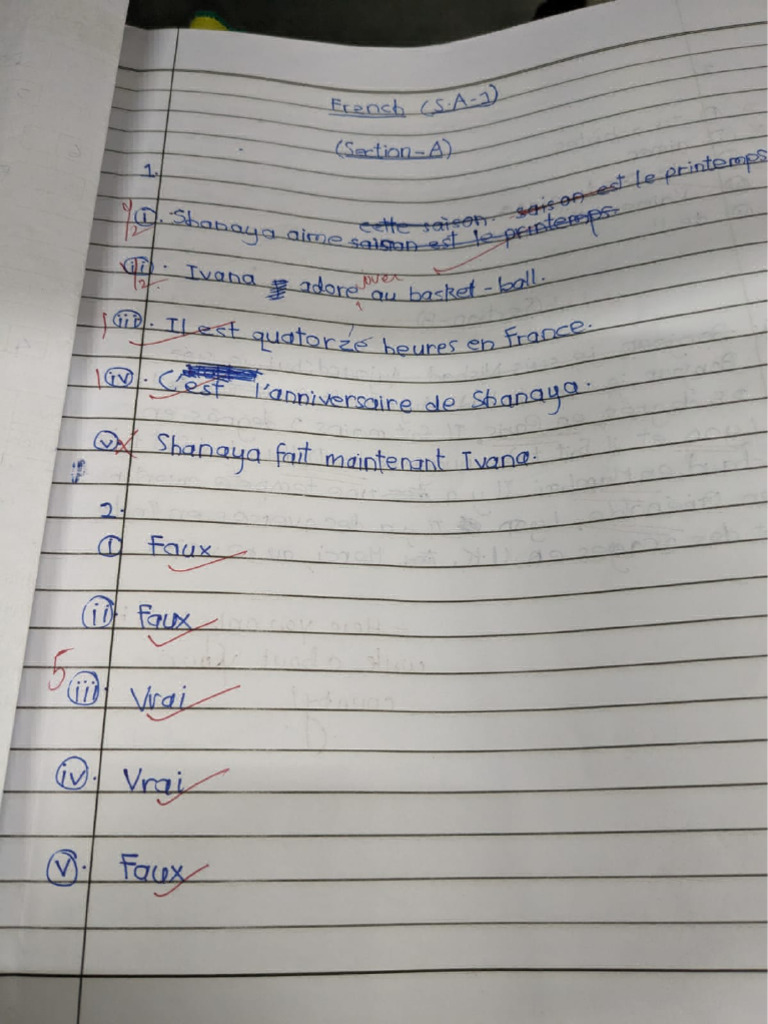 French (S.A-1)
(Section-A)
1.
1/2 i. Shanaya aime cette saison. saison est le printemps
saison est le printemps
1/2 ii. Ivana adore au basket-ball.
1 iii. Il est quatorze heures en France.
1 iv. C'est l'anniversaire de Shanaya.
v. Shanaya fait maintenant Ivana.
2.
i Faux
ii Faux
5
iii. Vrai
iv. Vrai
v. Faux